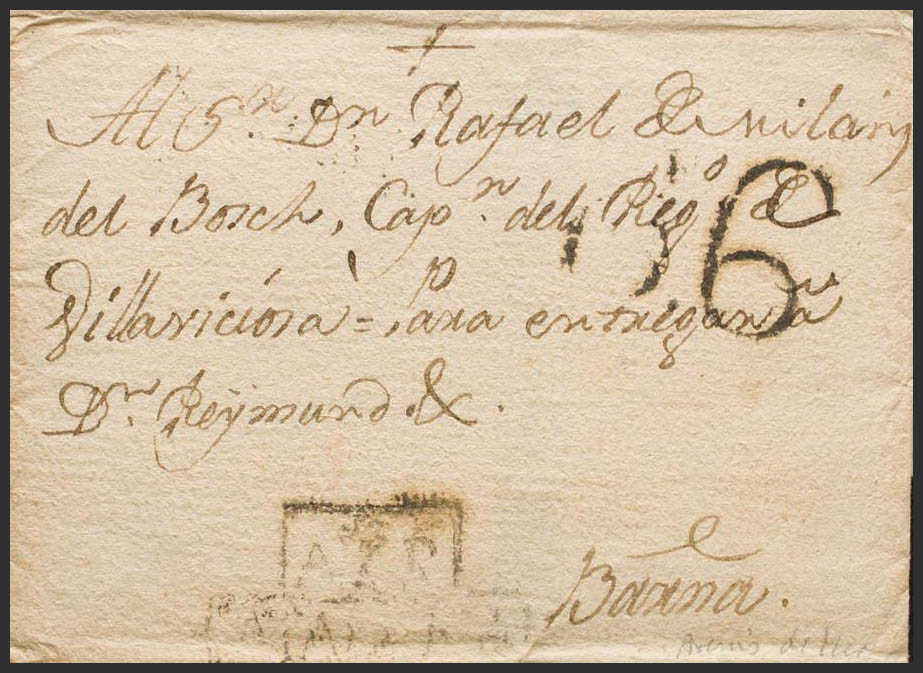 Al S.ⁿ Dⁿ Rafael de Milans
del Bosch, Cap.ⁿ del Reg.º de
Villaviciosa = Para entregar â
D.ⁿ Reymund.&.
6
Barna.